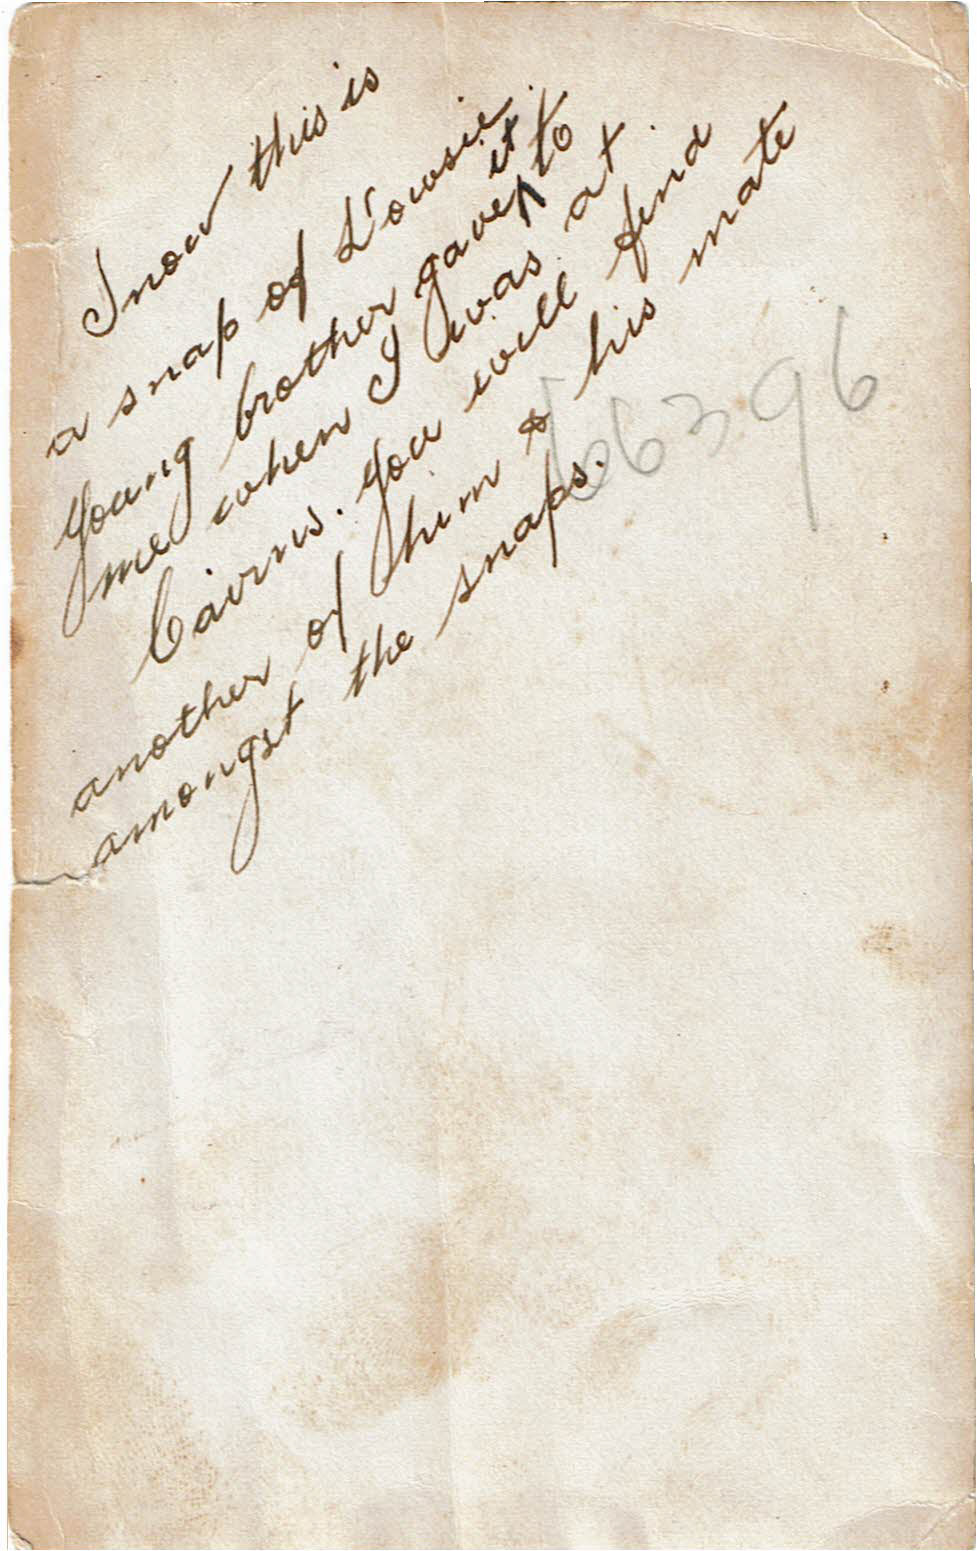 Snow this is
a snap of
young brother gave it to
me when I was at
Cairns. You will find
another of him & his mate
amongst the snaps.
66396